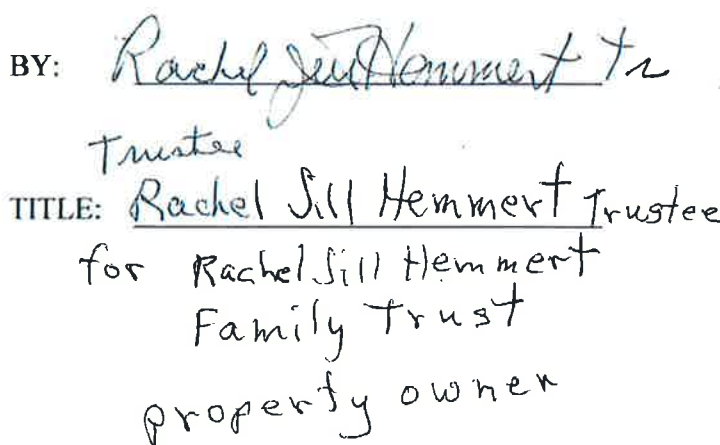 BY: Rachel Jill Hemmert Tr
Trustee
TITLE: Rachel Jill Hemmert Trustee
for Rachel Jill Hemmert
Family Trust
property owner